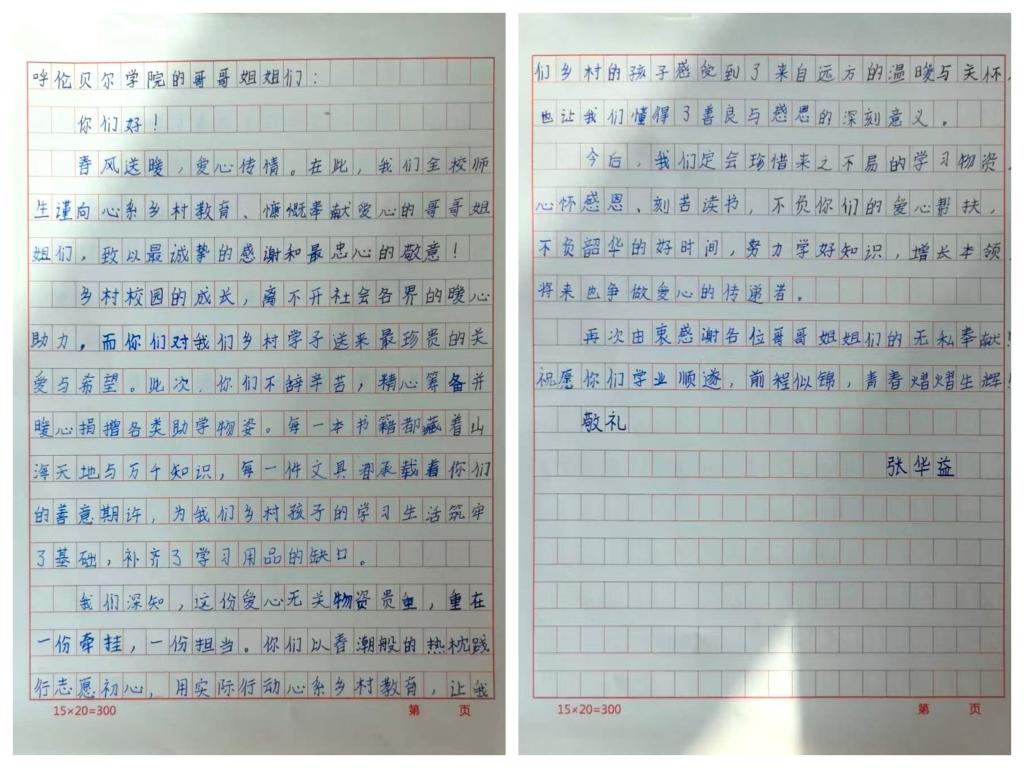 呼伦贝尔学院的哥哥姐姐们：
你们好！
春风送暖，爱心传情。在此，我们全校师
生谨向心系乡村教育、慷慨奉献爱心的哥哥姐
姐们，致以最诚挚的感谢和最忠心的敬意！
乡村校园的成长，离不开社会各界的暖心
助力，而你们对我们乡村学子送来最珍贵的关
爱与希望。此次，你们不辞辛苦，精心筹备并
暖心捐赠各类助学物姿。每一本书籍都藏着山
海天地与万千知识，每一件文具都承载着你们
的善意期许，为我们乡村孩子的学习生活筑牢
了基础，补齐了学习用品的缺口。
我们深知，这份爱心无关物资贵重，重在
一份牵挂，一份担当。你们以春潮般的热忱践
行志愿初心，用实际行动心系乡村教育，让我
15×20=300 第 页
们乡村的孩子感受到了来自远方的温暖与关怀，
也让我们懂得了善良与感恩的深刻意义。
今后，我们定会珍惜来之不易的学习物资，
心怀感恩、刻苦读书，不负你们的爱心帮扶，
不负韶华的好时间，努力学好知识，增长本领，
将来也争做爱心的传递者。
再次由衷感谢各位哥哥姐姐们的无私奉献！
祝愿你们学业顺遂，前程似锦，青春熠熠生辉！
敬礼
张华益
15×20=300 第 页